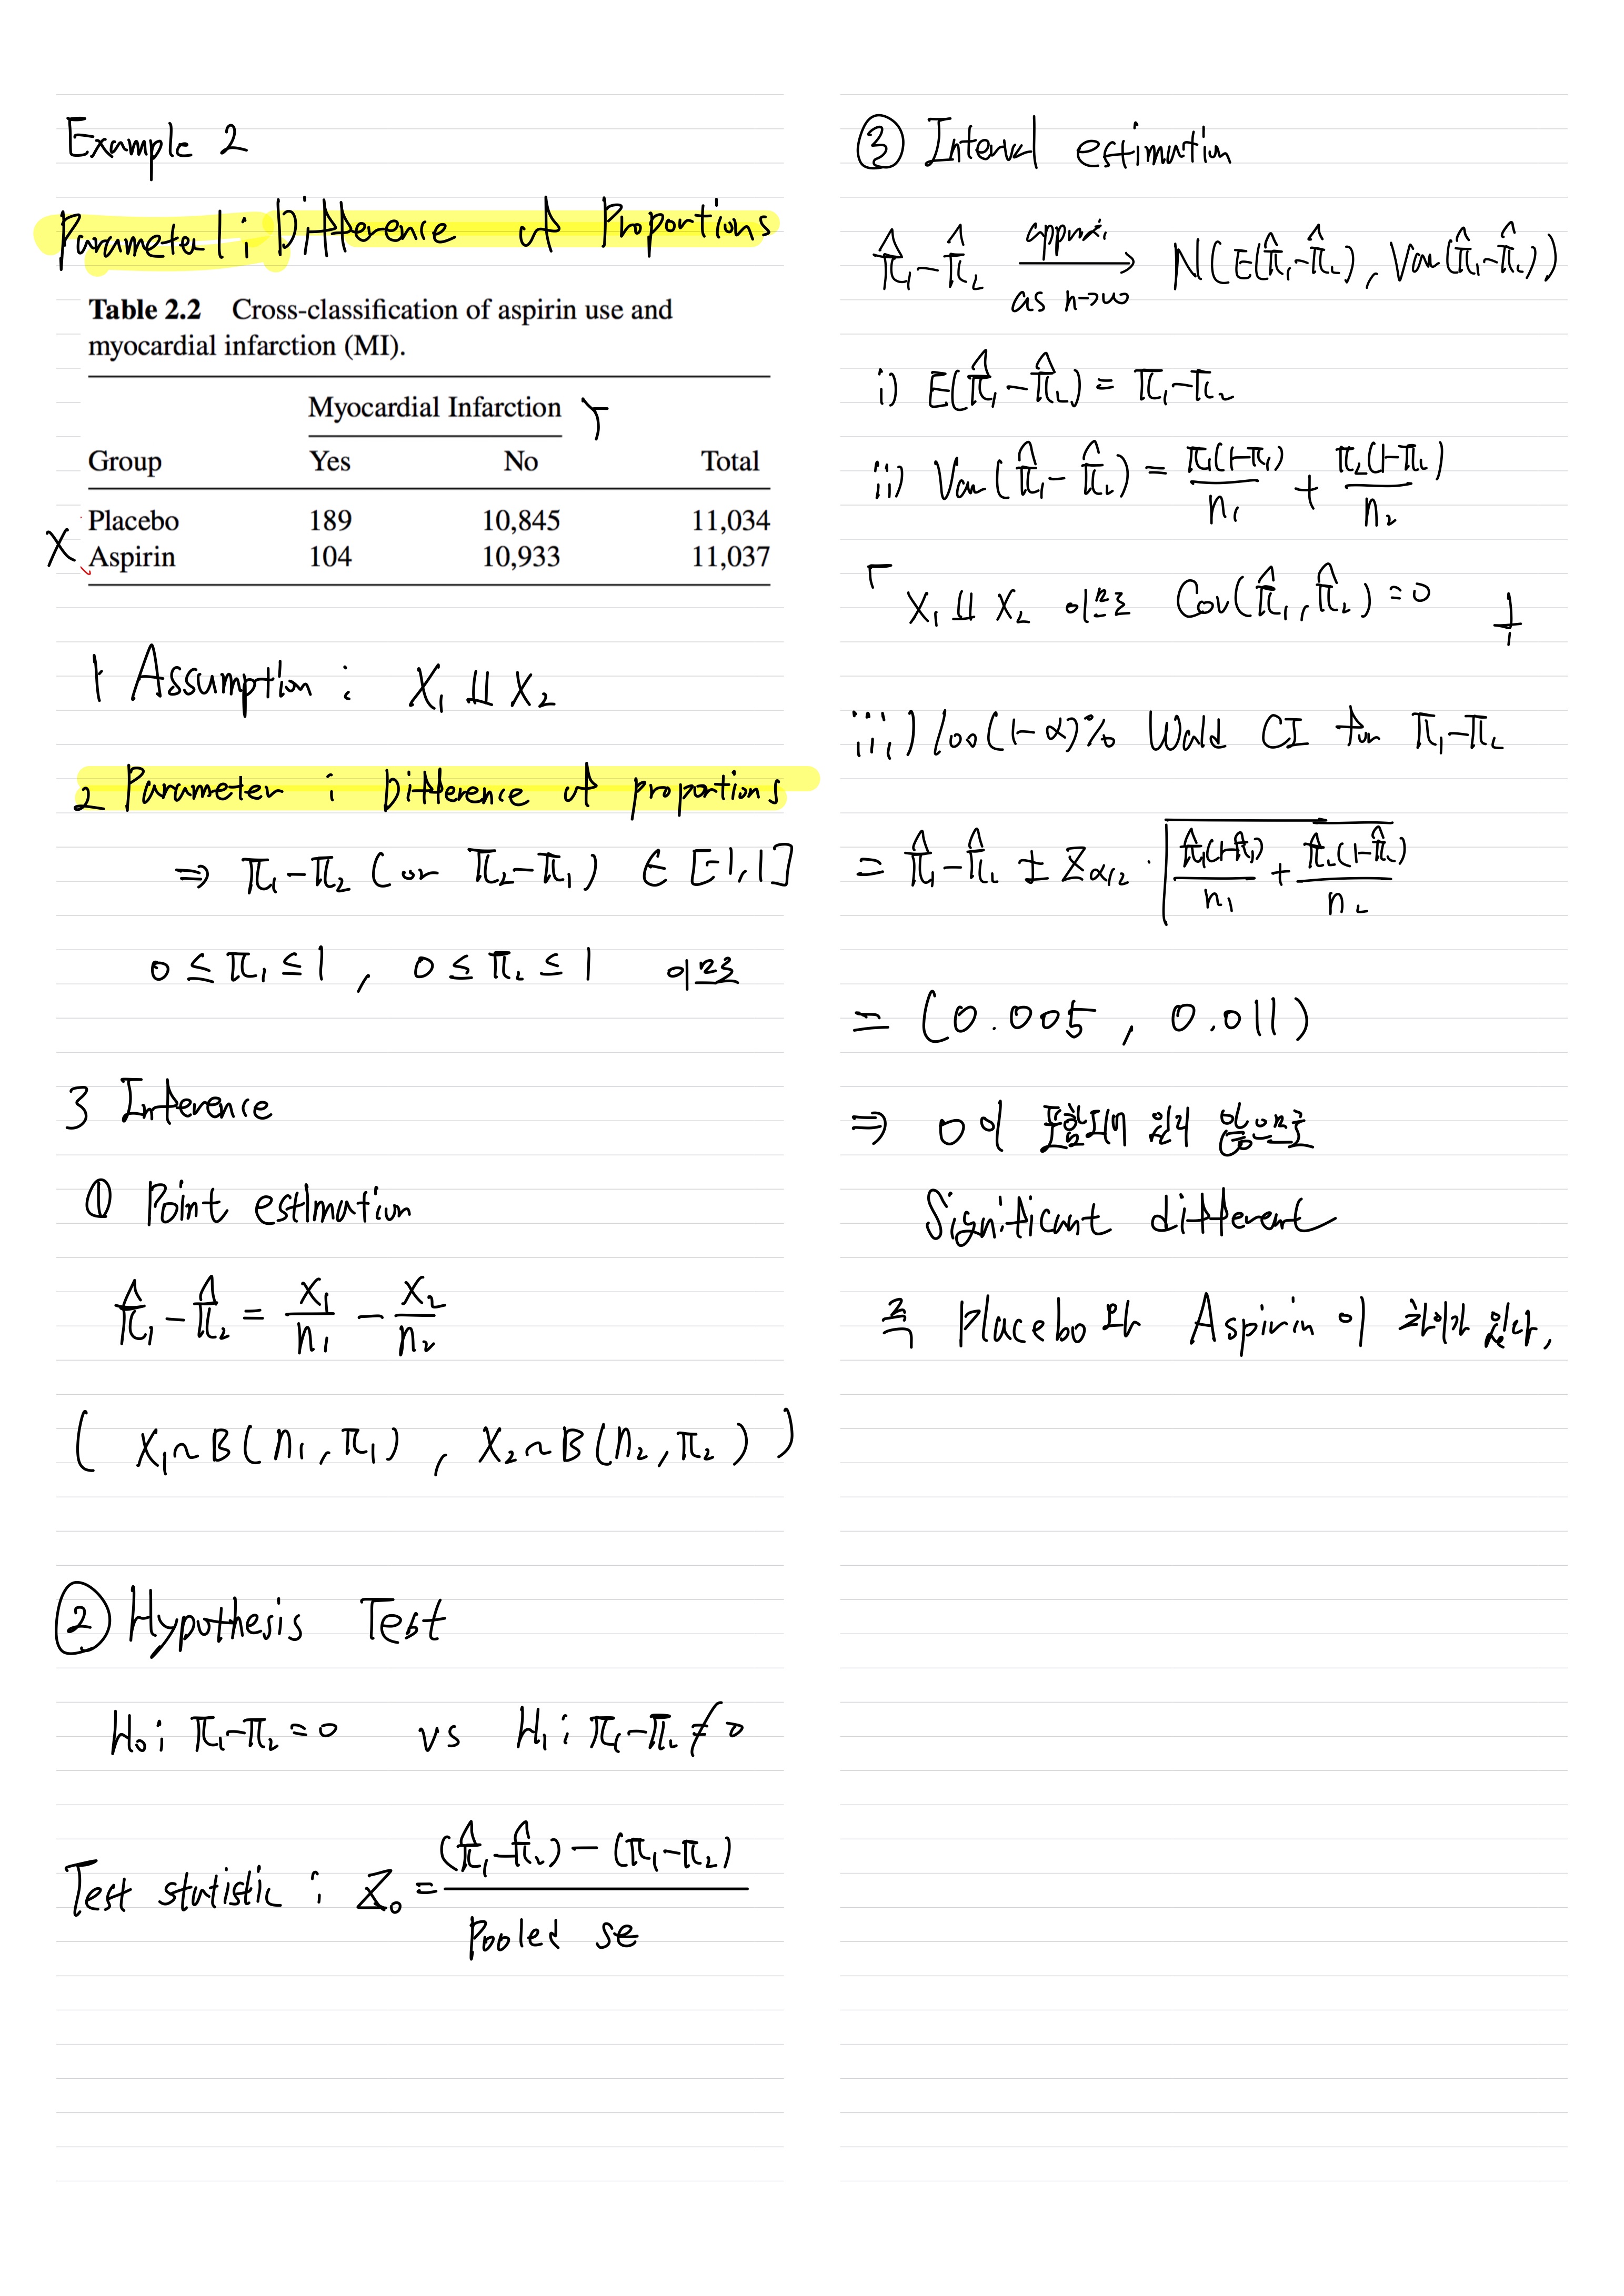 Example 2
Parameter 1 : Difference of Proportions
Table 2.2 Cross-classification of aspirin use and
myocardial infarction (MI).
Myocardial Infarction Y
Group Yes No Total
Placebo 189 10,845 11,034
X Aspirin 104 10,933 11,037
1 Assumption : X₁ ⫫ X₂
2 Parameter : Difference of proportions
⇒ π₁-π₂ (or π₂-π₁) ∈ [-1, 1]
0 ≤ π₁ ≤ 1 , 0 ≤ π₂ ≤ 1 이므로
3 Inference
① Point estimation
π̂₁ - π̂₂ = X₁/n₁ - X₂/n₂
( X₁ ~ B(n₁, π₁) , X₂ ~ B(n₂, π₂) )
② Hypothesis Test
H₀ : π₁-π₂ = 0 vs H₁ : π₁-π₂ ≠ 0
Test statistic : Z₀ = (π̂₁-π̂₂) - (π₁-π₂) / pooled se
③ Interval estimation
π̂₁-π̂₂ approx. → as n→∞ N(E(π̂₁-π̂₂), Var(π̂₁-π̂₂))
i) E(π̂₁-π̂₂) = π₁-π₂
ii) Var(π̂₁-π̂₂) = π₁(1-π₁)/n₁ + π₂(1-π₂)/n₂
「 X₁ ⫫ X₂ 이므로 Cov(π̂₁, π̂₂) = 0 」
iii) 100(1-α)% Wald CI for π₁-π₂
= π̂₁-π̂₂ ± Z_{α/2} · √(π̂₁(1-π̂₁)/n₁ + π̂₂(1-π̂₂)/n₂)
= (0.005 , 0.011)
⇒ 0이 포함되어 있지 않으므로
Significant different
즉 Placebo와 Aspirin이 차이가 있다.